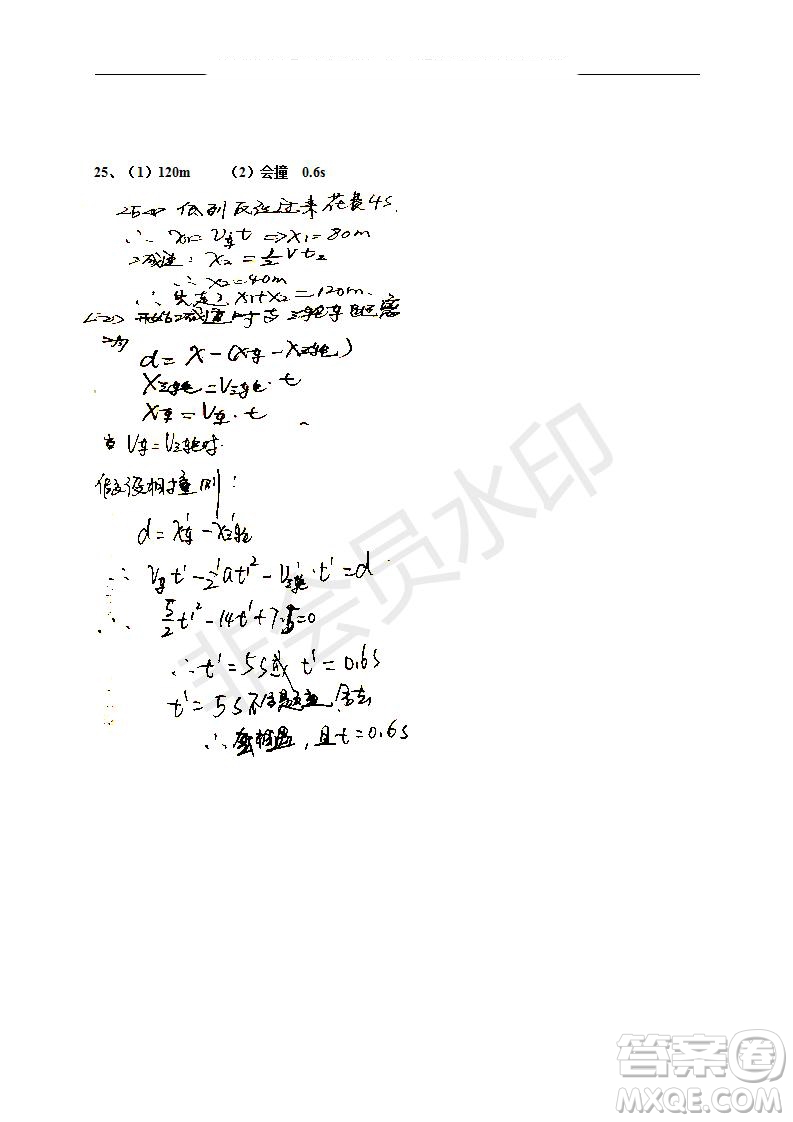 25、（1）120m （2）会撞 0.6s
25(1) 低头到反应过来花费4s.
∴ x₁=V车t ⇒x₁=80m
减速：x₂=½Vt₂
∴ x₂=40m
∴ 共走了x₁+x₂=120m.
(2) 开始减速时与三轮车距离
为
d=x-(x车-x三轮)
x三轮=V三轮·t
x车=V车·t
当V车=V三轮时
假设相撞则：
d=x车'-x三轮'
∴ V车t'-½at'²-V三轮'·t'=d
∴ 5/2t'²-14t'+7.5=0
∴t'=5s或 t'=0.6s
t'=5s不合题意，舍去
∴会相遇，且t=0.6s
非会员水印
答案圈
MXQE.COM